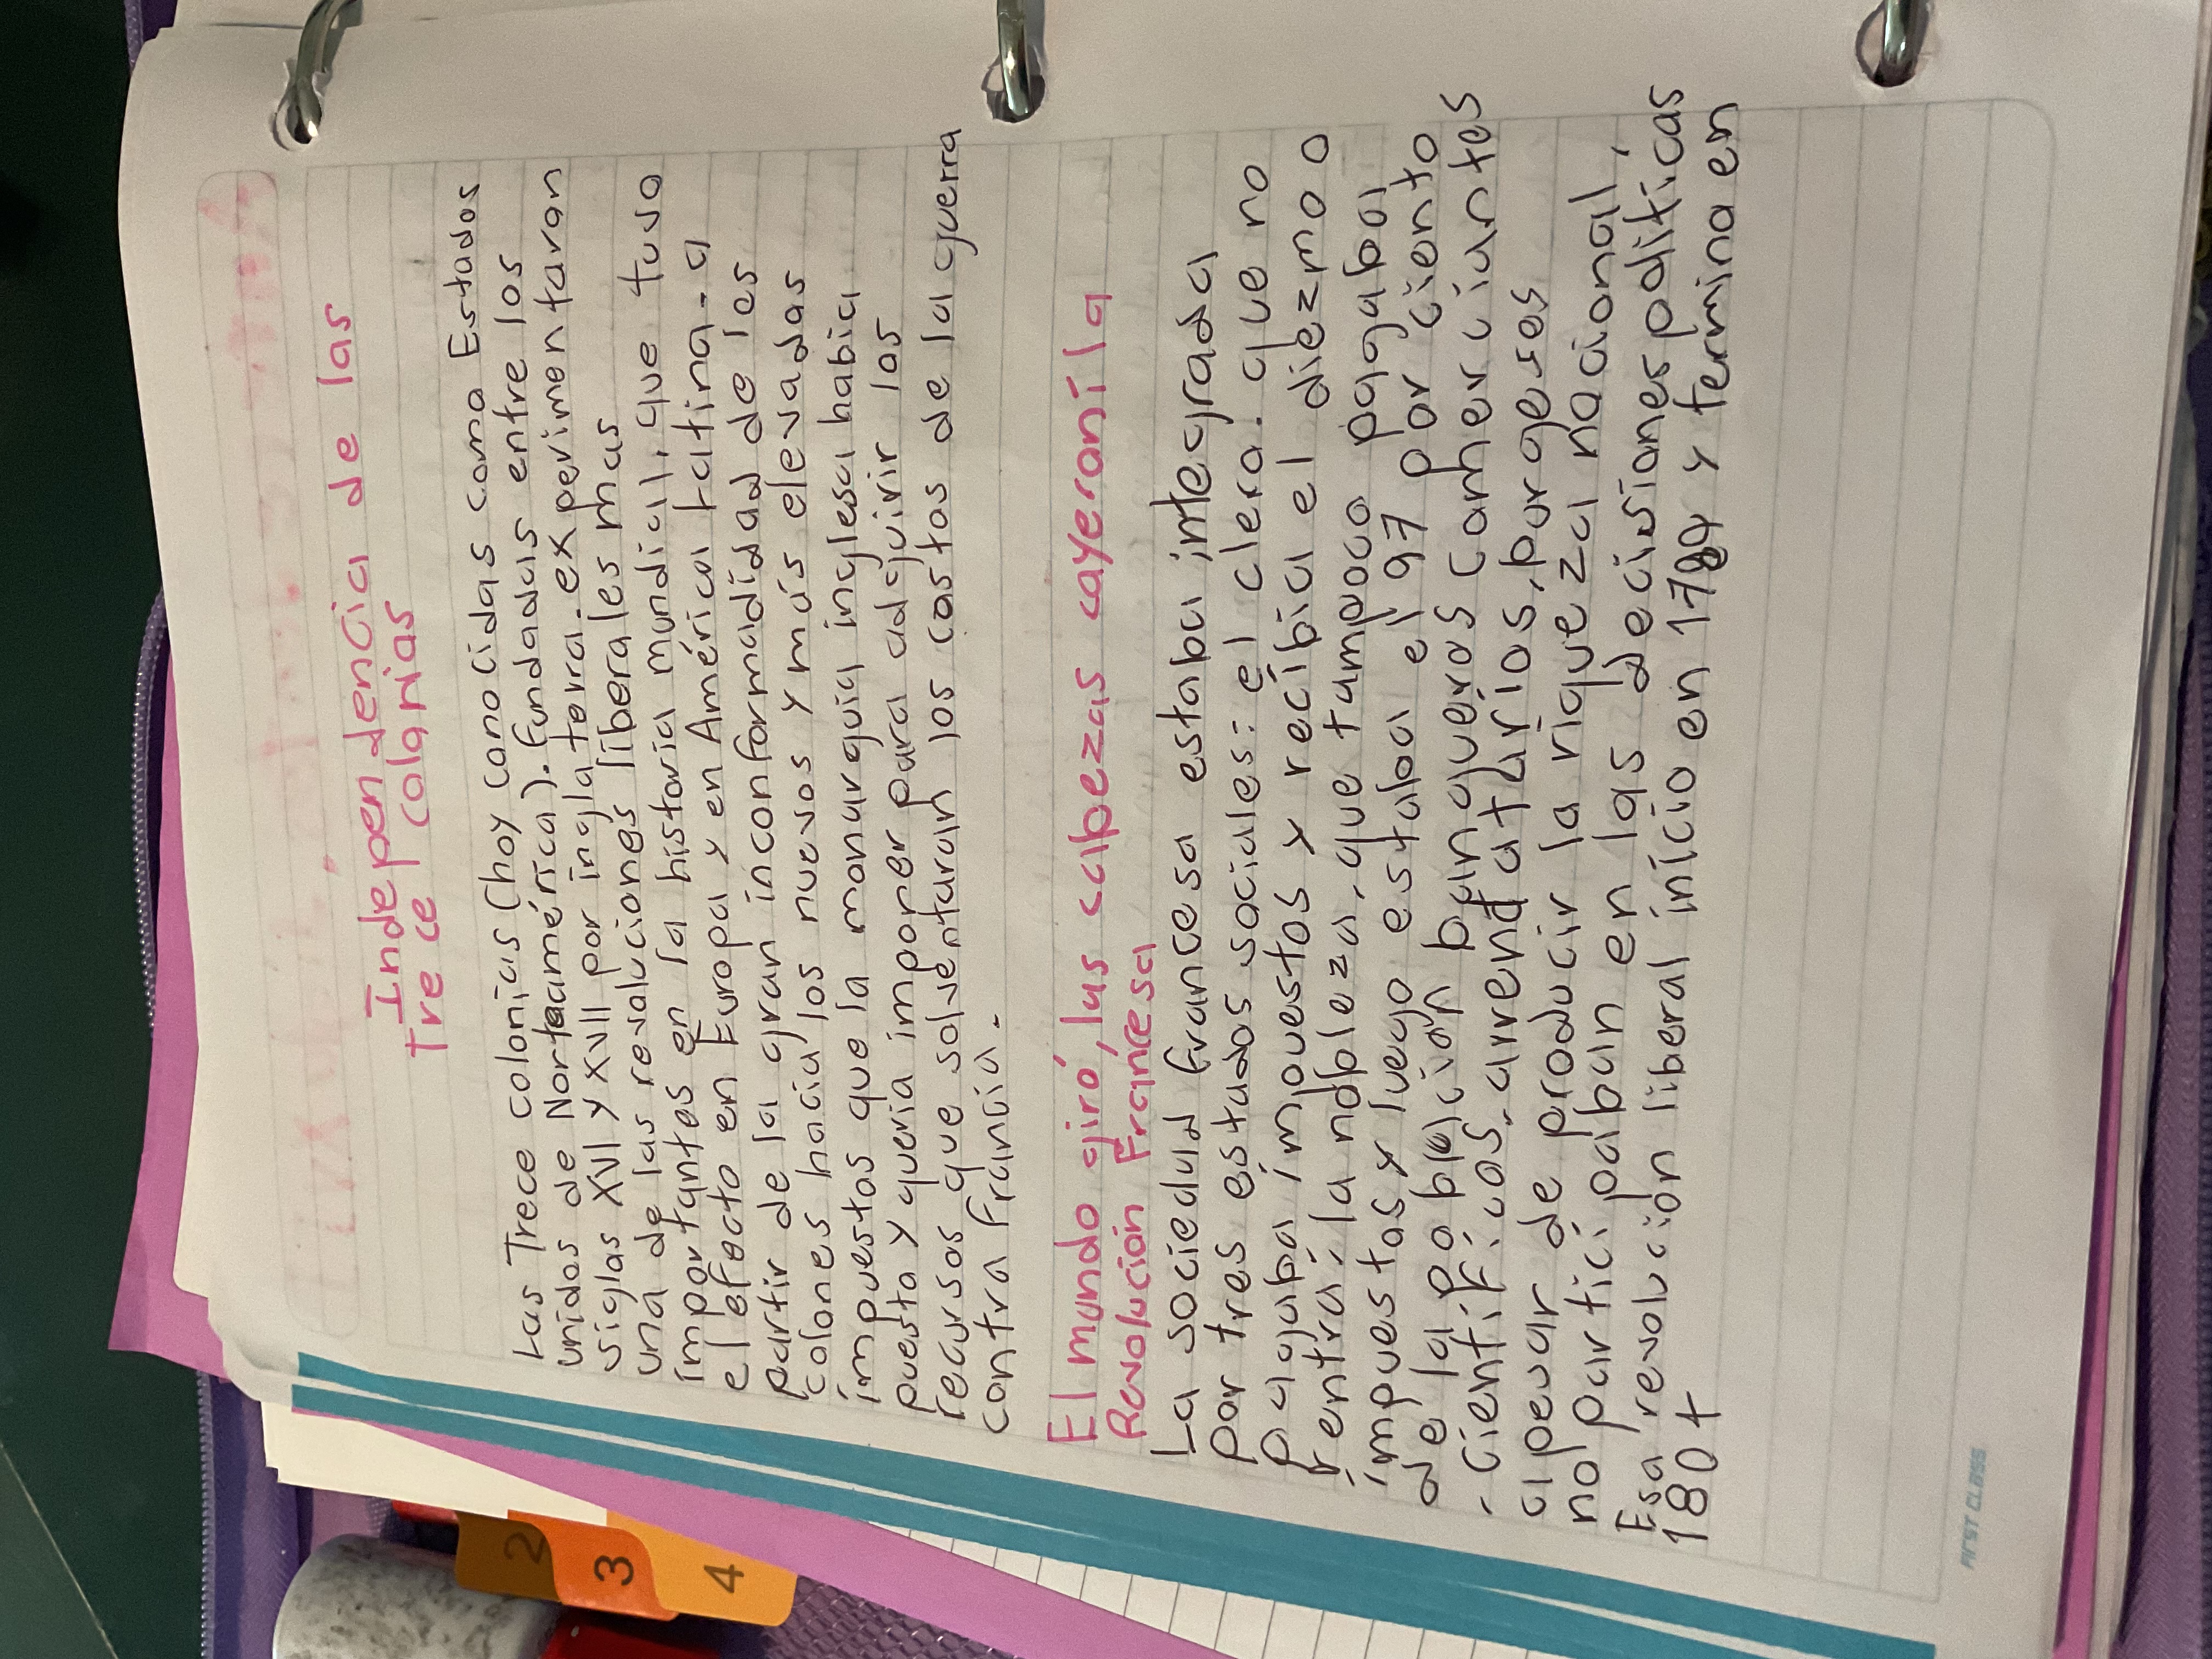 Independencia de las
Trece colonias
Las Trece colonias (hoy conocidas como Estados
unidos de Norteamérica). Fundadas entre los
siglos XVII y XVIII por inglaterra. experimentaran
una de las revoluciones liberales mas
importantes en la historia mundial. que tuvo
el efecto en Europa y en América Latina. a
partir de la gran inconformadidad de los
colones hacia los nuevos y más elevadas
impuestos que la monarquia inglesa habia
puesto y queria imponer para adquirir los
recursos que solventaran los costos de la guerra
contra Francia.
El mundo giró, las cabezas cayeron: la
Revolución Francesa
La sociedad francesa estaba integrada
por tres estados sociales: el clero. que no
pagaba impuestos y recibia el diezmo o
rentra; la nobleza. que tampoco pagaba
impuestos y luego estaba el 97 por ciento
de la población banqueros comherciantes
. cientificos. arrendatarios, burgeses
apesar de producir la riqueza nacional,
no participaban en las decisiones politicas
Esa revolución liberal inicio en 1789 y termina en
180+
FIRST CLASS
2
3
4